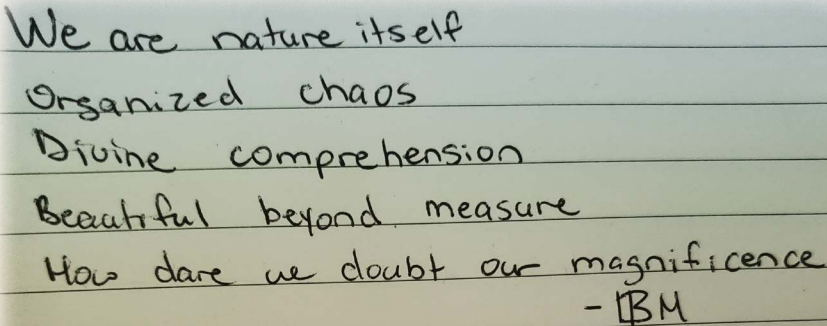 We are nature itself
Organized chaos
Divine comprehension
Beautiful beyond measure
How dare we doubt our magnificence
- BM